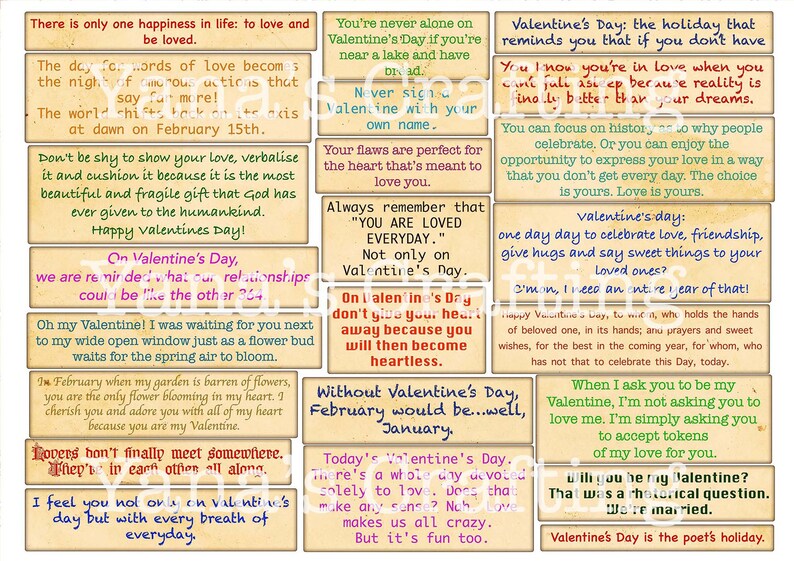 There is only one happiness in life: to love and
be loved.
The day for words of love becomes
the night of amorous actions that
say far more!
The world shifts back on its axis
at dawn on February 15th.
Don't be shy to show your love, verbalise
it and cushion it because it is the most
beautiful and fragile gift that God has
ever given to the humankind.
Happy Valentines Day!
On Valentine's Day,
we are reminded what our relationships
could be like the other 364.
Oh my Valentine! I was waiting for you next
to my wide open window just as a flower bud
waits for the spring air to bloom.
In February when my garden is barren of flowers,
you are the only flower blooming in my heart. I
cherish you and adore you with all of my heart
because you are my Valentine.
Lovers don't finally meet somewhere.
They're in each other all along.
I feel you not only on Valentine's
day but with every breath of
everyday.
You're never alone on
Valentine's Day if you're
near a lake and have
bread.
Never sign a
Valentine with your
own name.
Your flaws are perfect for
the heart that's meant to
love you.
Always remember that
"YOU ARE LOVED
EVERYDAY."
Not only on
Valentine's Day.
On Valentine's Day
don't give your heart
away because you
will then become
heartless.
Without Valentine's Day,
February would be...well,
January.
Today's Valentine's Day.
There's a whole day devoted
solely to love. Does that
make any sense? Nah. Love
makes us all crazy.
But it's fun too.
Valentine's Day: the holiday that
reminds you that if you don't have
You know you're in love when you
can't fall asleep because reality is
finally better than your dreams.
You can focus on history as to why people
celebrate. Or you can enjoy the
opportunity to express your love in a way
that you don't get every day. The choice
is yours. Love is yours.
Valentine's day:
one day day to celebrate love, friendship,
give hugs and say sweet things to your
loved ones?
C'mon, I need an entire year of that!
Happy Valentine's Day, to whom, who holds the hands
of beloved one, in its hands; and prayers and sweet
wishes, for the best in the coming year, for whom, who
has not that to celebrate this Day, today.
When I ask you to be my
Valentine, I'm not asking you to
love me. I'm simply asking you
to accept tokens
of my love for you.
Will you be my Valentine?
That was a rhetorical question.
We're married.
Valentine's Day is the poet's holiday.
Yana's Crafting
Yana's Crafting
Yana's Crafting